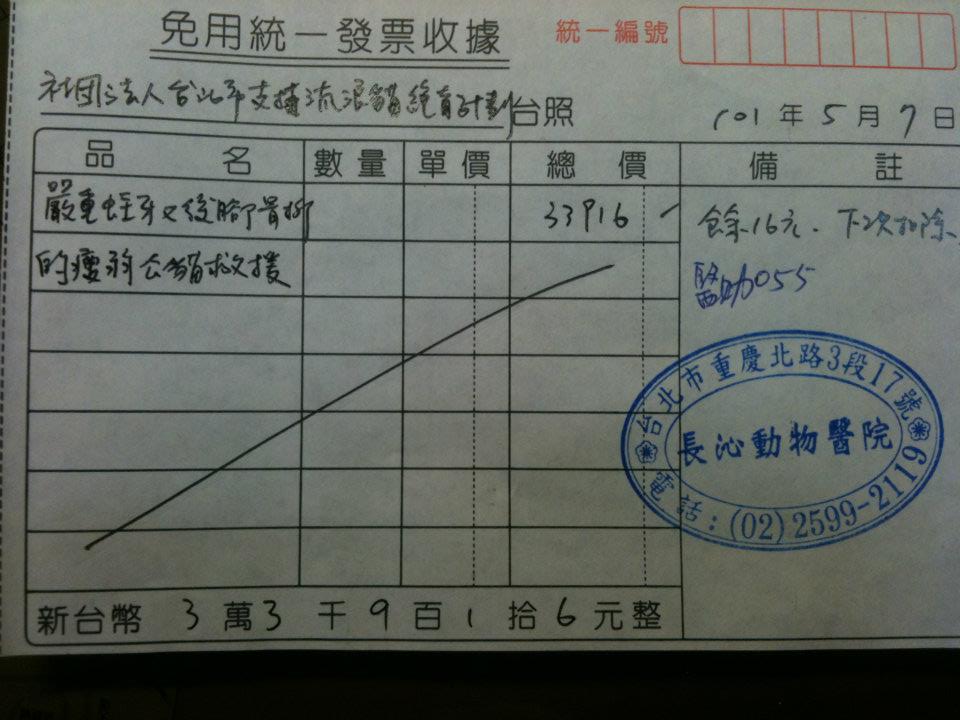 免用統一發票收據
統一編號
社团法人台北市支持流浪貓絕育計劃台照
101年5月7日
品名 數量 單價 總價 備註
嚴重蛀牙又後腳骨折 33916
餘16元.下次扣除.
的瘦弱公貓救援
醫助055
台北市重慶北路3段17號
長沁動物醫院
電話:(02)2599-2119
新台幣 3萬3千9百1拾6元整